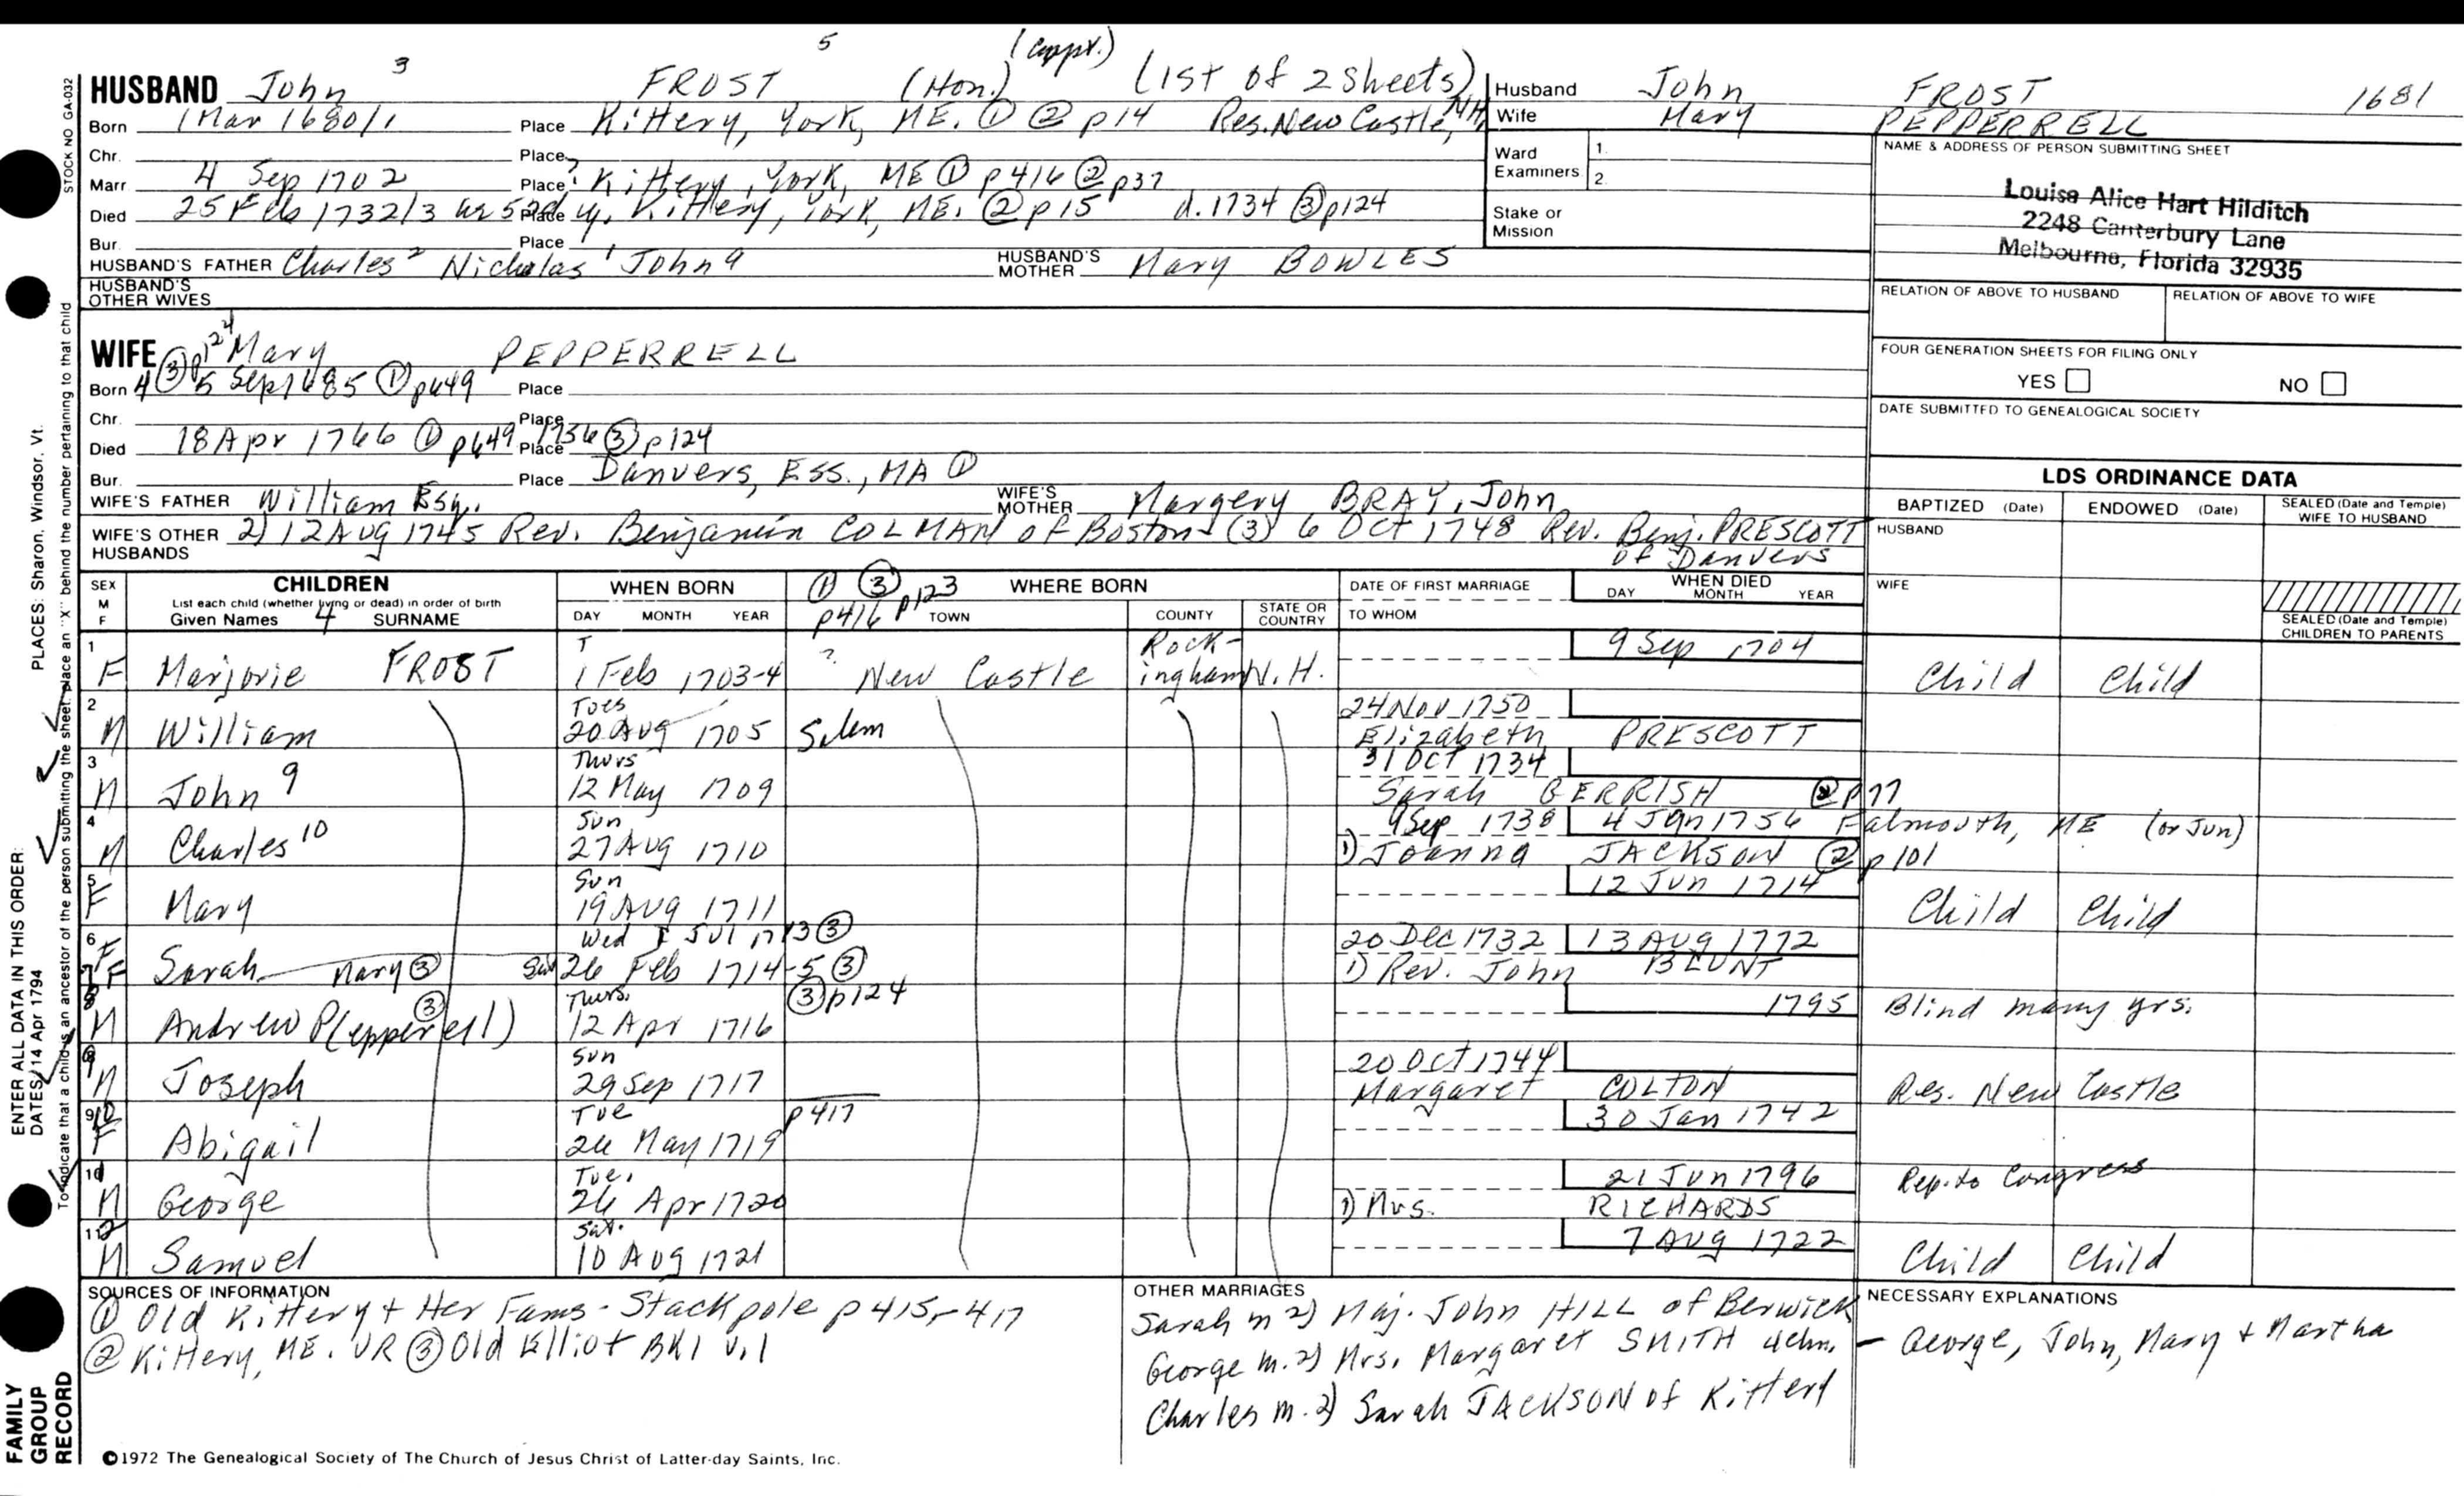 5 (Cappt.)
HUSBAND John 3 FROST (Hon.) (1st of 2 sheets)
Born 1 Mar 1680/1 Place Kittery, York, ME. ① ② p14 Res. New Castle, NH
Chr. Place
Marr. 4 Sep 1702 Place ? Kittery, York, ME ① p416 ② p37
Died 25 Feb 1732/3 ae 52d y. Place Kittery, York, ME. ② p15 d. 1734 ③ p124
Bur. Place
HUSBAND'S FATHER Charles 2 Nicholas 1 John 9 HUSBAND'S MOTHER Mary BOWLES
HUSBAND'S OTHER WIVES
Husband John FROST 1681
Wife Mary PEPPERRELL
Ward Examiners 1. 2.
Stake or Mission
NAME & ADDRESS OF PERSON SUBMITTING SHEET
Louise Alice Hart Hilditch
2248 Canterbury Lane
Melbourne, Florida 32935
RELATION OF ABOVE TO HUSBAND RELATION OF ABOVE TO WIFE
FOUR GENERATION SHEETS FOR FILING ONLY
YES NO
DATE SUBMITTED TO GENEALOGICAL SOCIETY
WIFE ③ p124 Mary PEPPERRELL
Born 4 ③ 5 Sep 1685 ① p649 Place
Chr. Place
Died 18 Apr 1766 ① p649 1756 ③ p124 Place
Bur. Place Danvers, Ess., MA ①
WIFE'S FATHER William Esq. WIFE'S MOTHER Margery BRAY, John
WIFE'S OTHER HUSBANDS 2) 12 Aug 1745 Rev. Benjamin COLMAN of Boston (3) 6 Oct 1748 Rev. Benj. PRESCOTT of Danvers
LDS ORDINANCE DATA
BAPTIZED (Date) ENDOWED (Date) SEALED (Date and Temple) WIFE TO HUSBAND
HUSBAND
WIFE
SEALED (Date and Temple) CHILDREN TO PARENTS
SEX M F
CHILDREN
List each child (whether living or dead) in order of birth
Given Names 4 SURNAME
WHEN BORN
DAY MONTH YEAR
① p416 ③ p123 WHERE BORN
TOWN COUNTY STATE OR COUNTRY
DATE OF FIRST MARRIAGE
TO WHOM
WHEN DIED
DAY MONTH YEAR
1 F Marjorie FROST T 1 Feb 1703-4 ? New Castle Rockingham N.H. 9 Sep 1704 Child Child
2 M William Tues 20 Aug 1705 Salem 24 Nov 1750 Elizabeth PRESCOTT
3 M John 9 Thurs 12 May 1709 31 Oct 1734 Sarah GERRISH ② p77
4 M Charles 10 Sun 27 Aug 1710 9 Sep 1738 4 Jan 1756 Falmouth, ME (or Jun)
1) Joanna JACKSON ② p101
5 F Mary Sun 19 Aug 1711 12 Jun 1714 Child Child
6 F Wed 1 Jul 1713 ③ 20 Dec 1732 13 Aug 1772
7 F Sarah Mary ③ Sat 26 Feb 1714-5 ③ 1) Rev. John BLUNT
8 M Andrew P(epperrell) ③ Thurs. 12 Apr 1716 ③ p124 1795 Blind many yrs.
9 M Joseph Sun 29 Sep 1717 20 Oct 1744 Margaret COLTON Res. New Castle
9 10 F Abigail Tue 26 May 1719 p417 30 Jan 1742
10 M George Tue. 26 Apr 1720 21 Jun 1796 Rep. to Congress
1) Mrs. RICHARDS
11 12 M Samuel Sat. 10 Aug 1721 7 Aug 1722 Child Child
SOURCES OF INFORMATION
① Old Kittery + Her Fams - Stackpole p 415-417
② Kittery, ME. VR ③ Old Elliot BK1 v.1
OTHER MARRIAGES
Sarah m 2) Maj. John HILL of Berwick
George m. 2) Mrs. Margaret SMITH 4chn.
Charles m. 2) Sarah JACKSON of Kittery
NECESSARY EXPLANATIONS
— George, John, Mary + Martha
©1972 The Genealogical Society of The Church of Jesus Christ of Latter-day Saints, Inc.
STOCK NO GA-032
PLACES: Sharon, Windsor, Vt.
To indicate that a child is an ancestor of the person submitting the sheet, place an "X" behind the number pertaining to that child
ENTER ALL DATA IN THIS ORDER:
DATES: 14 Apr 1794
FAMILY GROUP RECORD